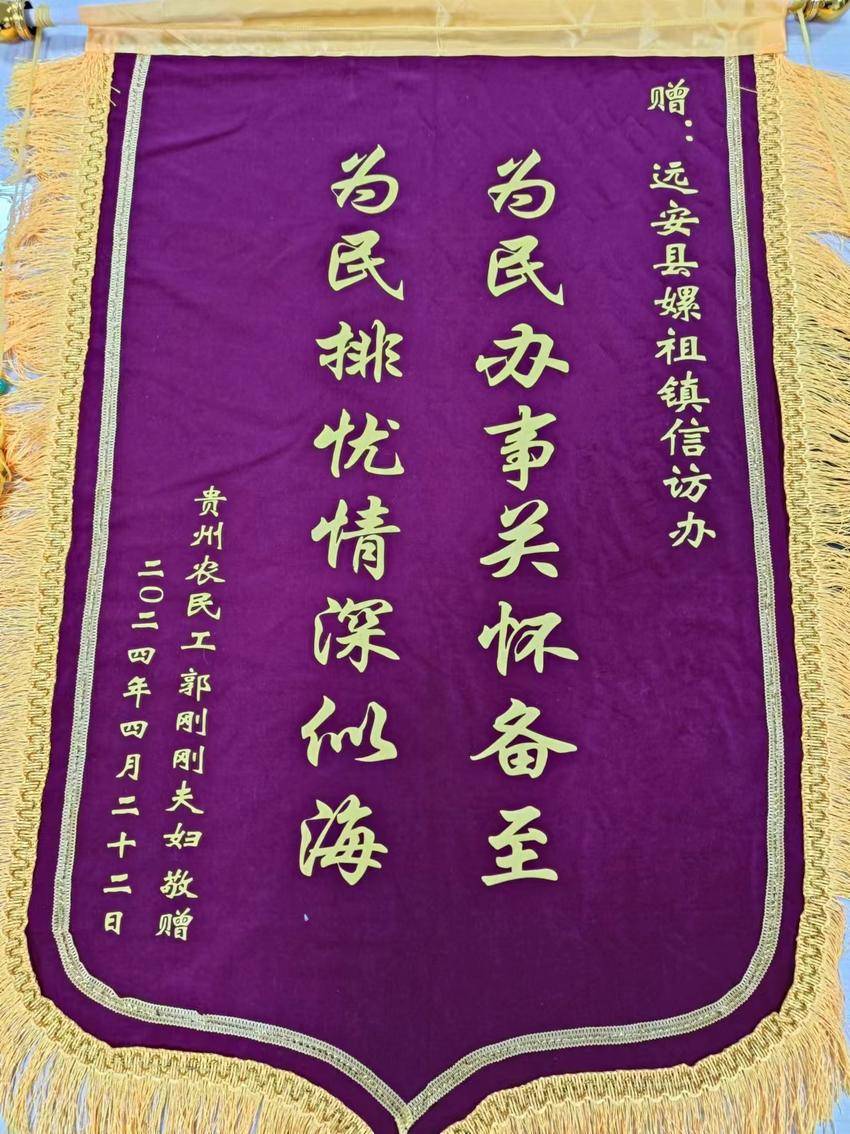 赠：远安县嫘祖镇信访办
为民办事关怀备至
为民排忧情深似海
贵州农民工郭刚刚夫妇敬赠
二〇二四年四月二十二日